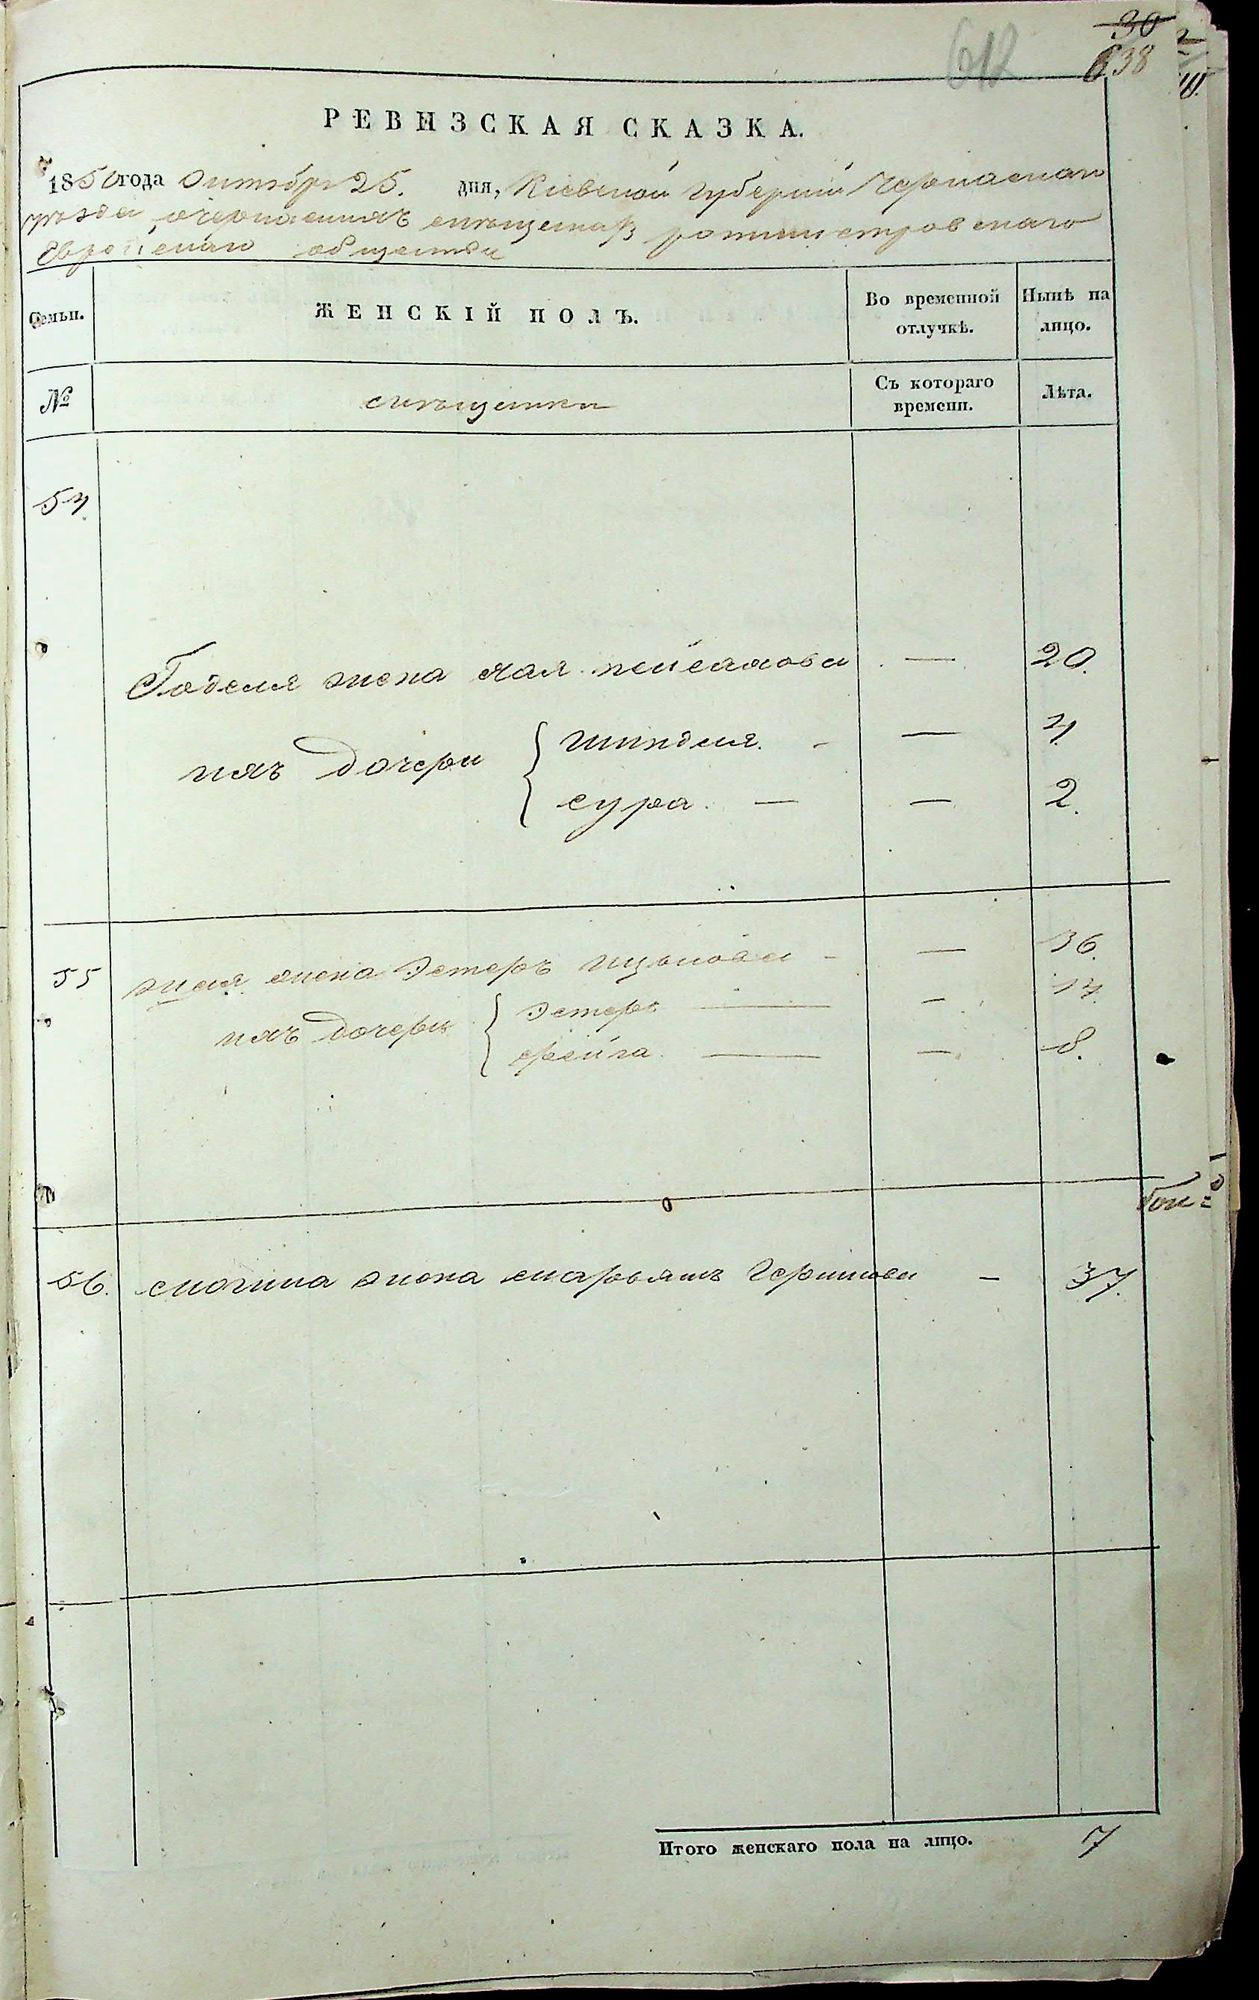 30
638
612
РЕВИЗСКАЯ СКАЗКА.
1850 года Октября 25. дня, Кіевской губерніи Черкаскаго
уезда о черкаскихъ мещанахъ ротмистровскаго
Еврейскаго общества
Семьи. ЖЕНСКІЙ ПОЛЪ. Во временной отлучкѣ. Нынѣ на лицо.
№ мещанки Съ котораго времени. Лѣта.
54
Годеля жена Хая Пейсахова — 20.
ихъ дочери { Шиндля. — 4.
Сура. — — 2.
55 жена Эстеръ Ицькова — 36.
ихъ дочери { Эстеръ — — 17.
Фейга. — — 8.
56. жена Марьямъ Гершкова — 37.
Итого женскаго пола на лицо. 7